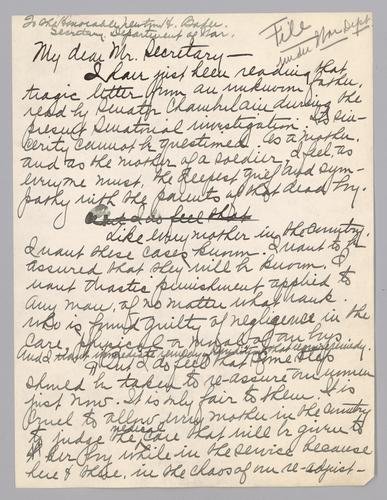 To the Honorable Newton H. Baker.
Secretary, Department of War.
File
under War Dept
My dear Mr. Secretary—
I have just been reading that
tragic letter from an unknown father,
read by Senator Chamberlain during the
present Senatorial investigation. Its sin-
cerity cannot be questioned. As a mother,
and as the mother of a soldier, I feel, as
everyone must, the deepest grief and sym-
pathy with the parents of that dead boy.
Like every mother in the country,
I want these cases known. I want to be
assured that they will be known. I
want drastic punishment applied to
any man, of no matter what rank,
who is found guilty of negligence in the
care, physical or moral, of our boys.
And I want immediate remedy
But I do feel that some step
should be taken to re-assure our women
just now. It is only fair to them. It is
cruel to allow every mother in the country
to judge the medical care that will be given to
her boy while in the service because
here & there, in the chaos of our re-adjust-